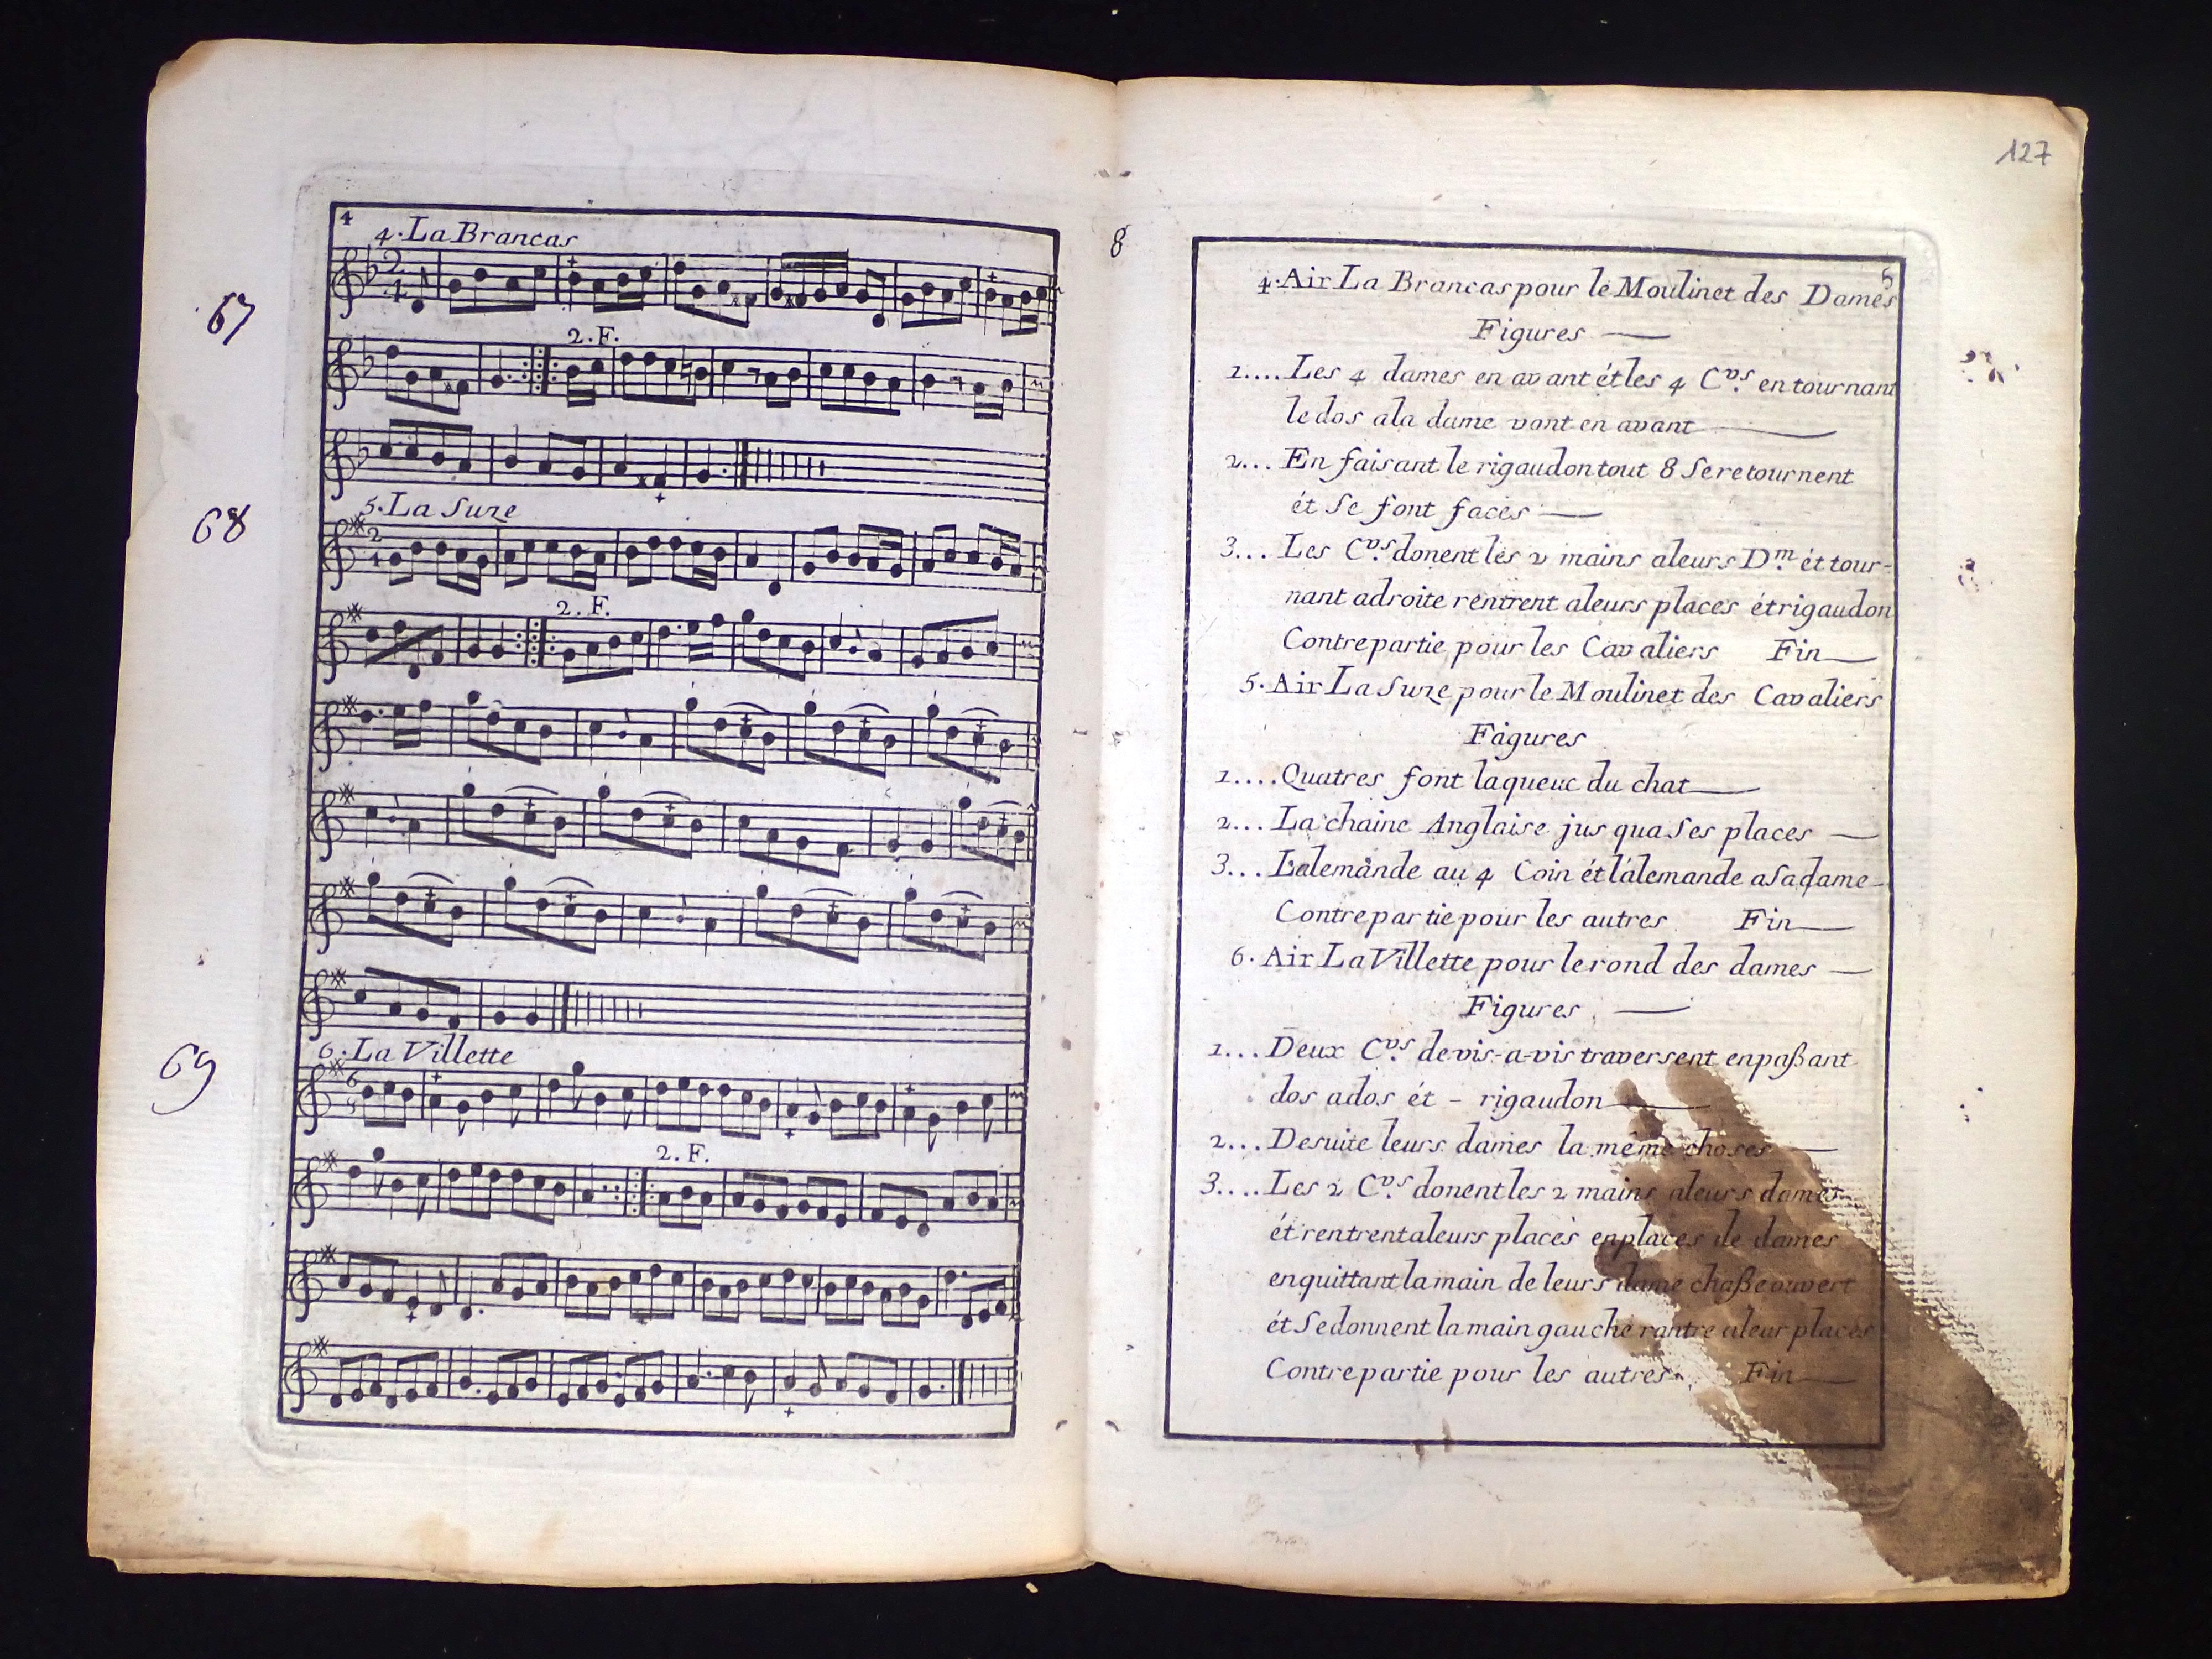 4
4. La Brancas
67
2. F.
68
5. La Suze
2. F.
69
6. La Villette
2. F.
8
127
5
4. Air La Brancas pour le Moulinet des Dames
Figures
1.... Les 4 dames en avant ét les 4 Cvs. en tournant
le dos a la dame vont en avant
2... En faisant le rigaudon tout 8 Se retournent
ét Se font faces
3... Les Cvs. donent les 2 mains a leurs Dm. ét tour-
nant a droite rentrent a leurs places ét rigaudon
Contrepartie pour les Cavaliers Fin
5. Air La Suze pour le Moulinet des Cavaliers
Figures
1.... Quatres font la queue du chat
2... La chaine Anglaise jus qua Ses places
3... Lalemande au 4 Coin ét l'alemande a Sa dame
Contrepartie pour les autres Fin
6. Air La Villette pour le rond des dames
Figures
1... Deux Cvs. de vis-a-vis traversent en paßant
dos a dos ét - rigaudon
2... De suite leurs dames la même choses
3.... Les 2 Cvs. donent les 2 mains a leurs dames
ét rentrent a leurs places en places de dames
en quittant la main de leurs dame chaße ouvert
ét Se donnent la main gauche rantre a leur places
Contrepartie pour les autres. Fin